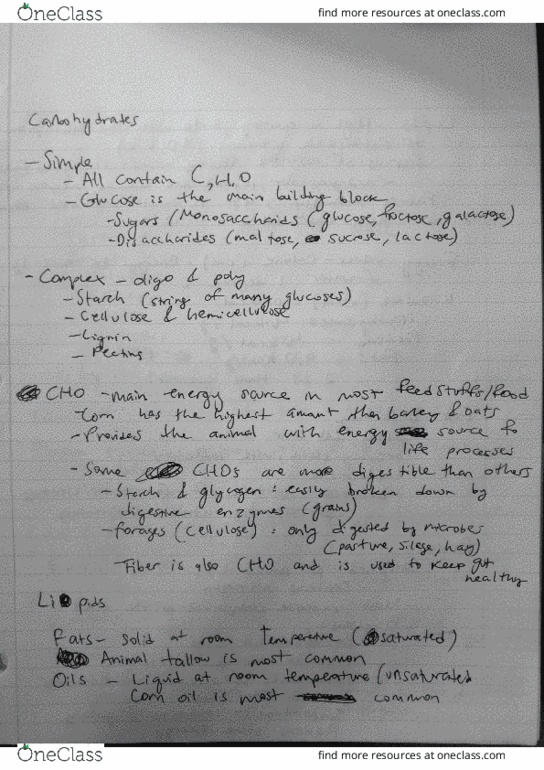 OneClass
find more resources at oneclass.com
Carbohydrates
- Simple
- All contain C, H, O
- Glucose is the main building block
- Sugars / Monosaccharids (glucose, fructose, galactose)
- Disaccharides (maltose, sucrose, lactose)
- Complex - oligo & poly
- Starch (string of many glucoses)
- Cellulose & hemicellulose
- Lignin
- Pectins
CHO - main energy source in most feedstuffs/food
- Corn has the highest amount then barley & oats
- Provides the animal with energy source for
life processes
- Some CHOs are more digestible than others
- Starch & glycogen : easily broken down by
digestive enzymes (grains)
- forages (cellulose) : only digested by microbes
(pasture, silage, hay)
- Fiber is also CHO and is used to keep gut
healthy
Lipids
Fats - Solid at room temperature (saturated)
Animal tallow is most common
Oils - Liquid at room temperature (unsaturated
Corn oil is most common
OneClass
find more resources at oneclass.com